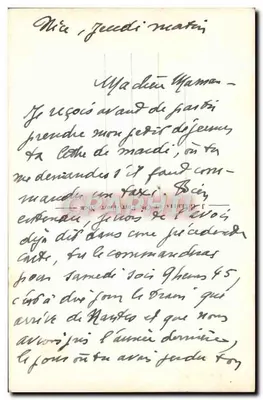 Nice, Jeudi matin
Ma chère Maman —
Je reçois avant de partir
prendre mon petit déjeuner
ta lettre de mardi, où tu
me demandes s'il faut com-
mander un taxi. Bien
entendu, je vois de l'avoir
déjà dit dans une précédente
carte, tu le commanderas
pour samedi soir 9 heures 45,
c'est à dire pour le train que
arrive de Nantes et que nous
avions pris l'année dernière,
le jour où tu avais perdu ton